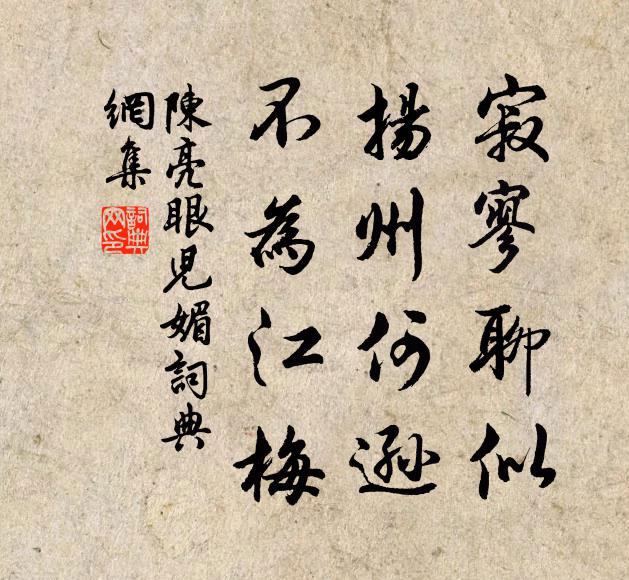 寂寥聊似
揚州何遜
不為江梅
陳亮眼兒媚詞典
網集
詞典
网印